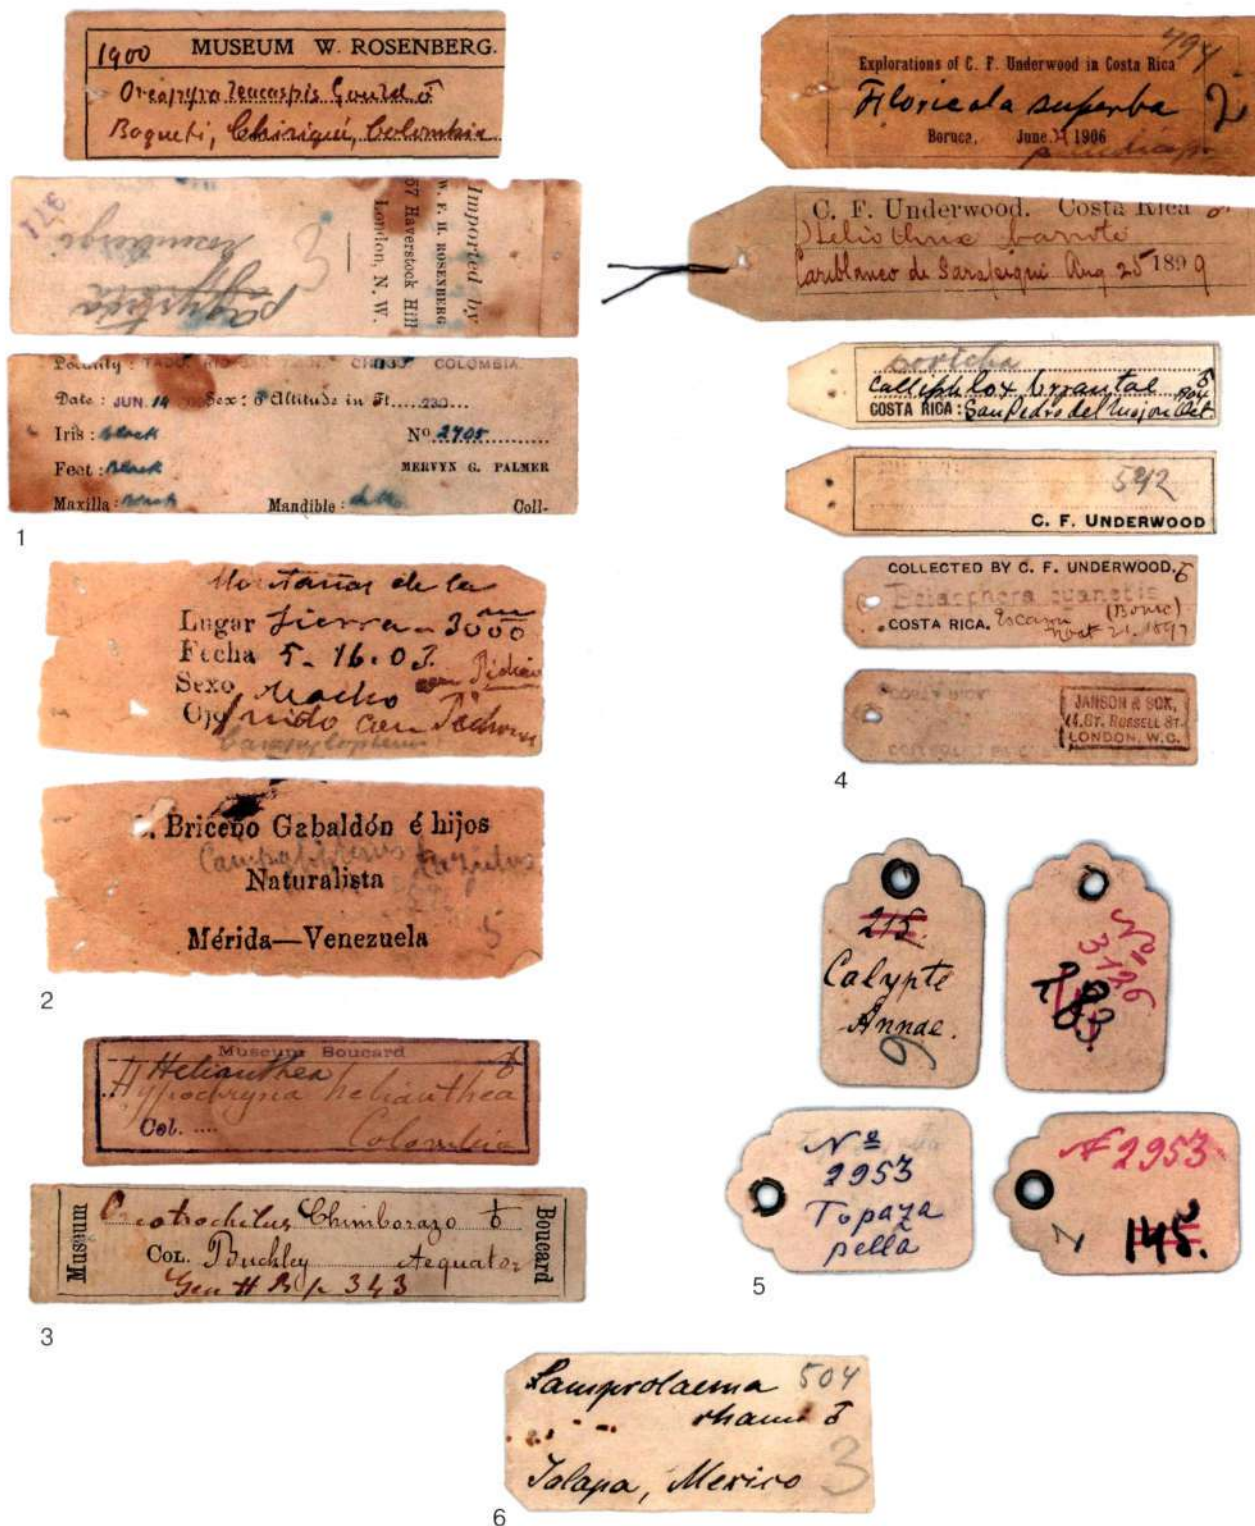 1900 MUSEUM W. ROSENBERG.
Oreopyra leucaspis Gould ♂
Boqueti, Chiriqui, Colombia
371
Rosenbergi
Imported by
W. F. H. ROSENBERG
57 Haverstock Hill
London, N. W.
Locality : CHOCO COLOMBIA
Date : JUN. 14 Sex : ♂ Altitude in ft. 230
Iris : Black Nº 2705
Feet : Black MERVYN G. PALMER
Maxilla : Black Mandible : Coll-
1
Montañas de la
Lugar Sierra - 3000 m
Fecha 5. 16. 03.
Sexo Macho
Ojo nido con Pichones
Campylopterus
Briceño Gabaldón é hijos
Campylopterus
Naturalista
Mérida—Venezuela 5
2
Museum Boucard
Helianthea ♂
Hypochrysia helianthea
Col. .... Colombia
Museum Oreotrochilus Chimborazo ♂ Boucard
COL. Buckley Aequator
Gen H B p 343
3
494
Explorations of C. F. Underwood in Costa Rica
Floricola superba 2
Boruca, June 1906
C. F. Underwood. Costa Rica ♂
Heliothrix barroti
Cariblanco de Sarapiqui Aug 25 1899
Doricha
Calliphlox bryantae ♂
COSTA RICA : San Pedro del Mojon Oct.
542
C. F. UNDERWOOD
COLLECTED BY C. F. UNDERWOOD. ♂
Petasophora cyanotis
COSTA RICA. Escazu (Bourc)
21. 1897
JANSON & SON,
44, GT. RUSSELL ST.
LONDON, W.C.
4
215.
Calypte
Annae.
Nº 3126
283
Nº
2953
Topaza
pella
Nº 2953
145.
5
Lamprolaema 504
rhami ♂
Jalapa, Mexico 3
6